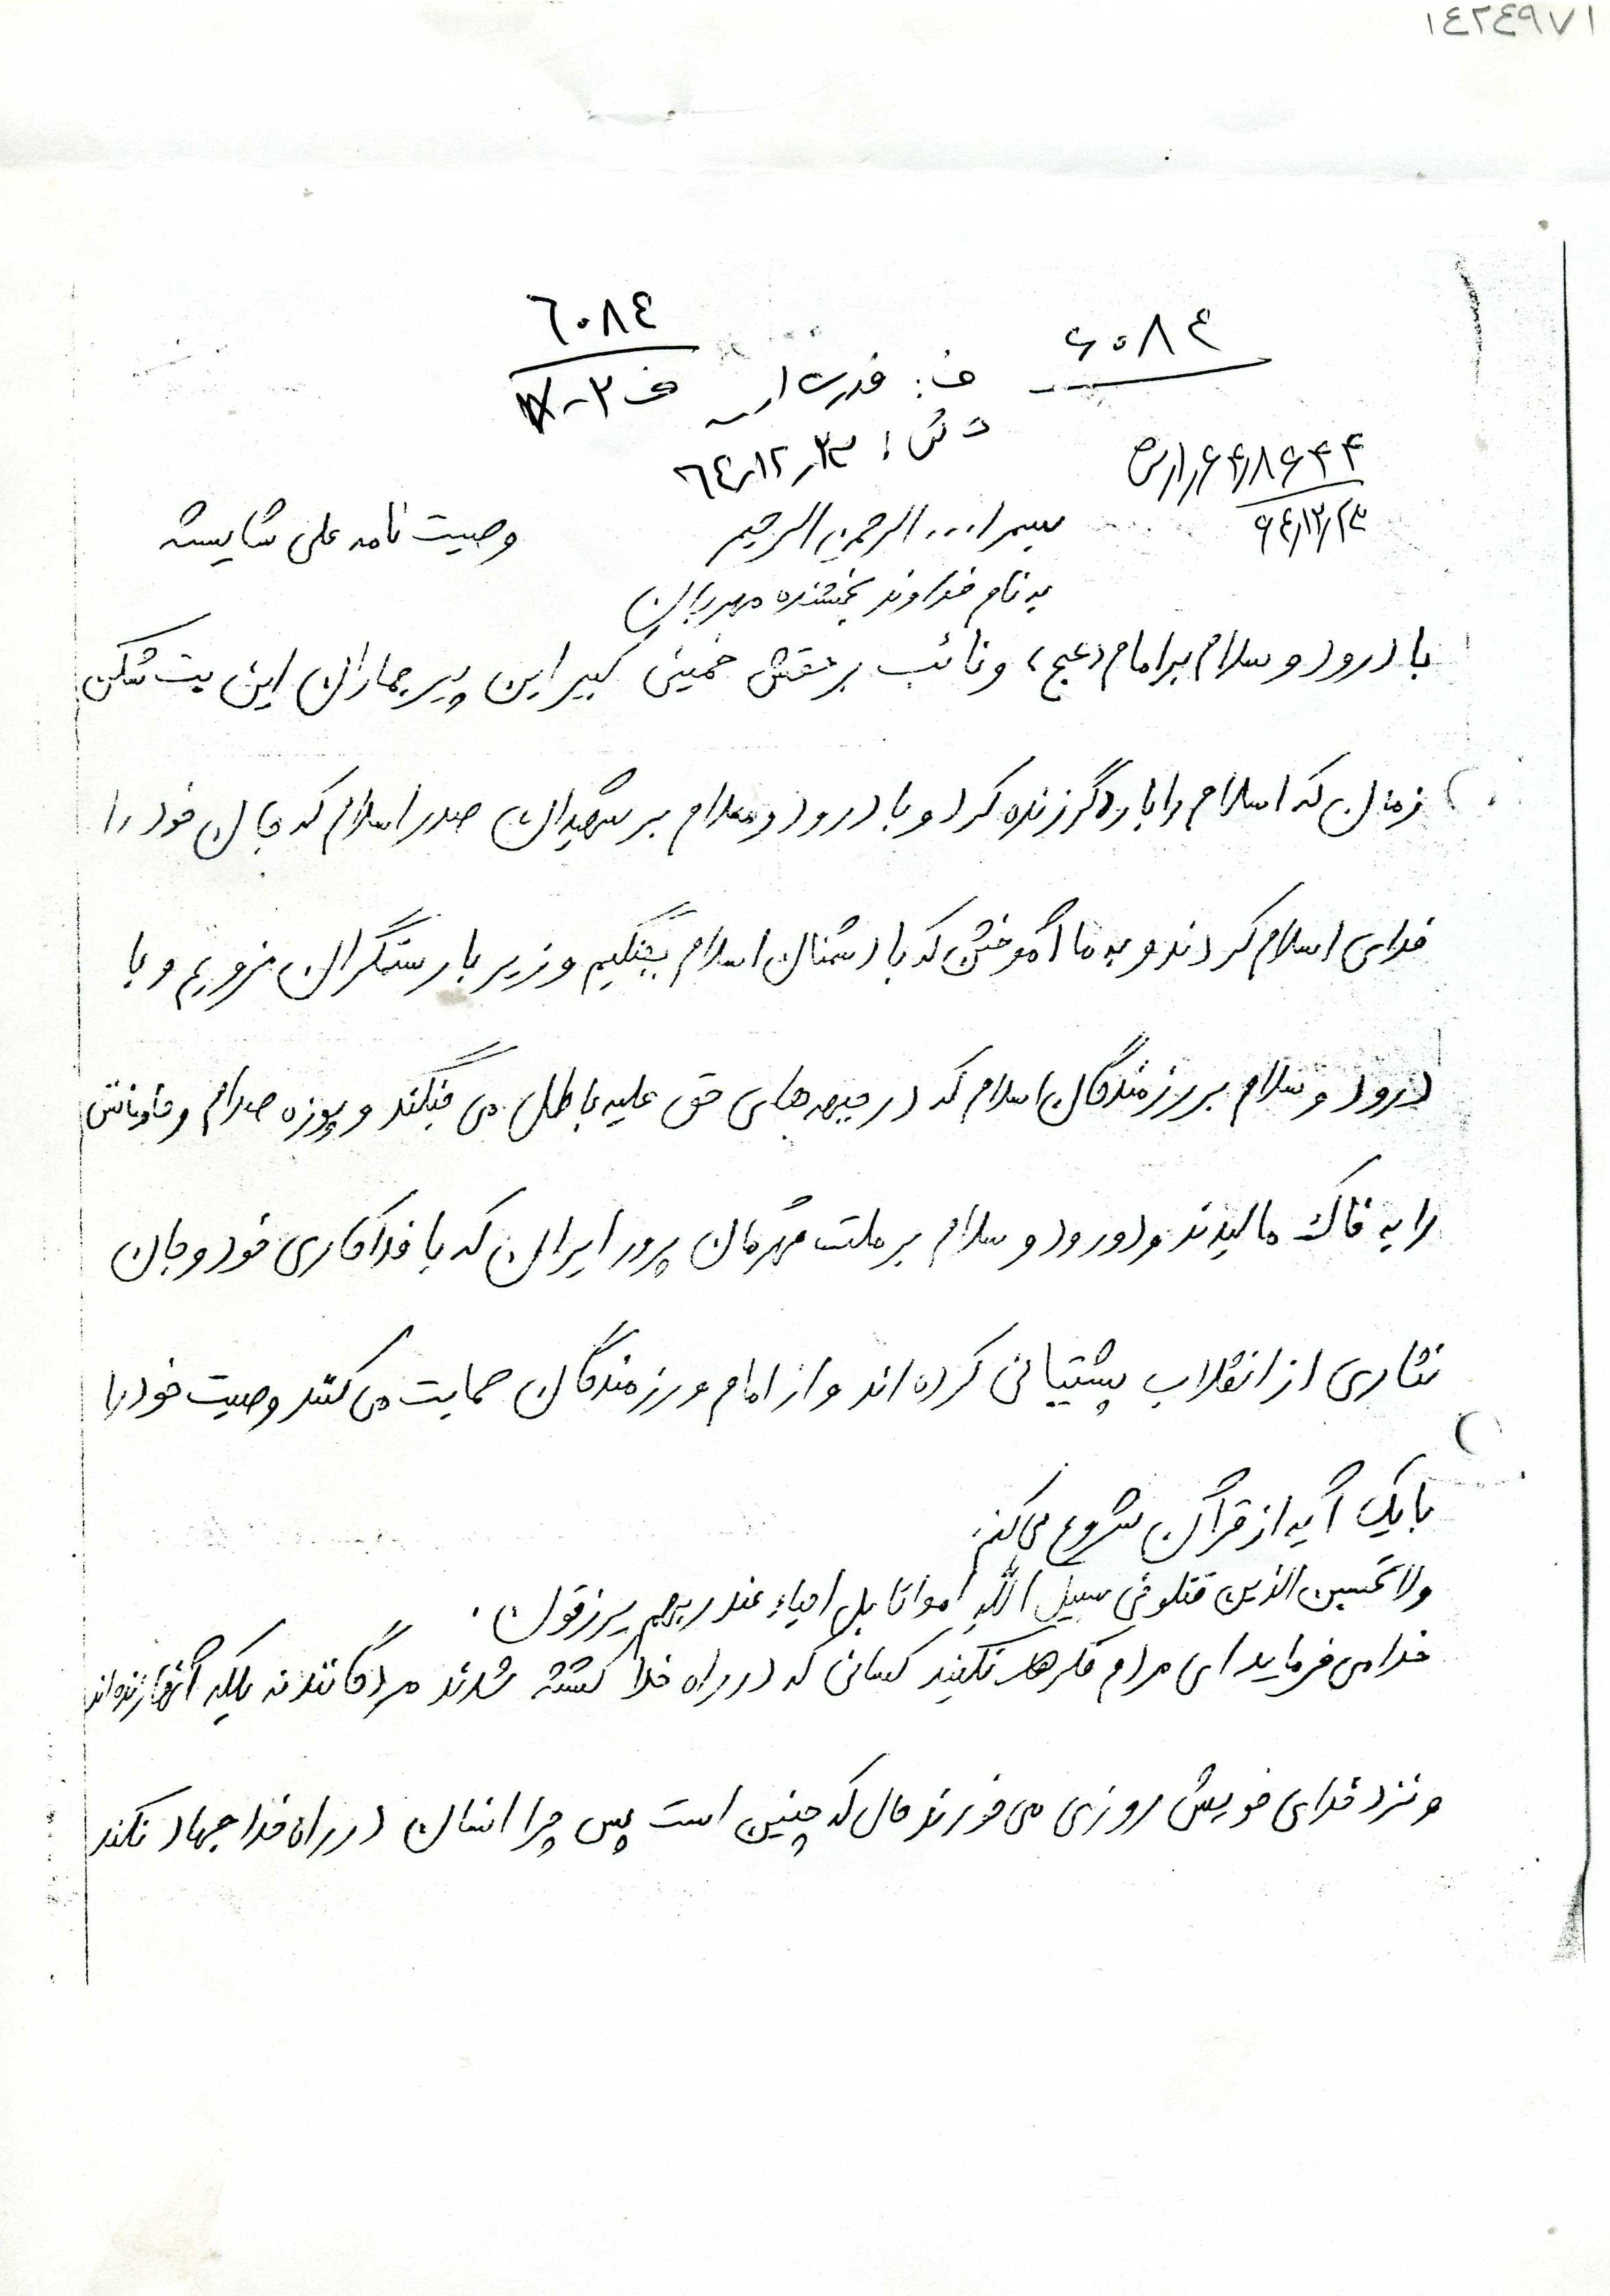 ١٤٢٤٩٧١
٦٠٨٤
٦٠٨٤
ف: قدرت ا
ف ٢-
ش: ٦٤،١٢،٢٣
٦٤،١٢،٢٣
بسم ا... الرحمن الرحیم
وصیت نامه علی شایسته
به نام خداوند بخشنده مهربان
با درود و سلام بر امام (عج)، و نائب بر حقش خمینی کبیر این پیر جماران این بت شکن
زمان که اسلام را بار دگر زنده کرد و با درود و سلام بر شهیدان صدر اسلام که جان خود را
فدای اسلام کردند و به ما آموختن که با دشمنان اسلام بجنگیم و زیر بار ستمگران نرویم و با
درود و سلام بر رزمندگان اسلام که در جبهه های حق علیه باطل می جنگند و پوزه صدام و
را به خاک مالیدند و درود و سلام بر ملت قهرمان پرور ایران که با فداکاری خود و جان
نثاری از انقلاب پشتیبانی کرده اند و از امام و رزمندگان حمایت می کنند وصیت خود را
با یک آیه از قرآن شروع می کنم.
ولا تحسبن الذین قتلو فی سبیل الله امواتا بل احیاء عند ربهم یرزقون.
خدا می فرماید ای مردم فکر نکنید کسانی که در راه خدا کشته شدند مردگانند نه بلکه آنها زنده اند
و نزد خدای خویش روزی می خورند حال که چنین است پس چرا انسان در راه خدا جهاد نکند